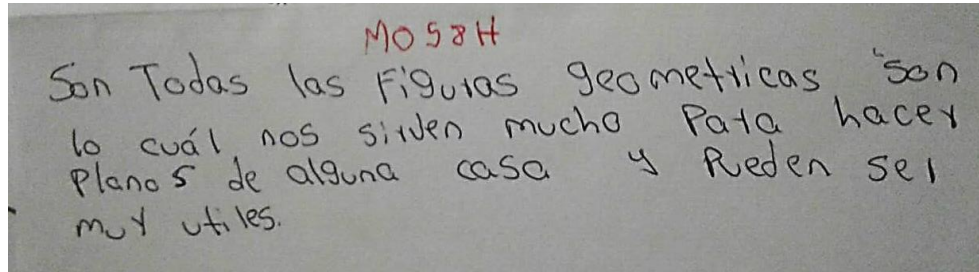 MO58H
Son Todas las Figuras geometricas "son
lo cuál nos sirven mucho Para hacer
Planos de alguna casa y Pueden ser
muy utiles.